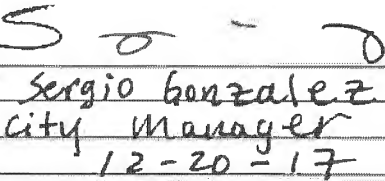 Sergio Gonzalez
city Manager
12-20-17